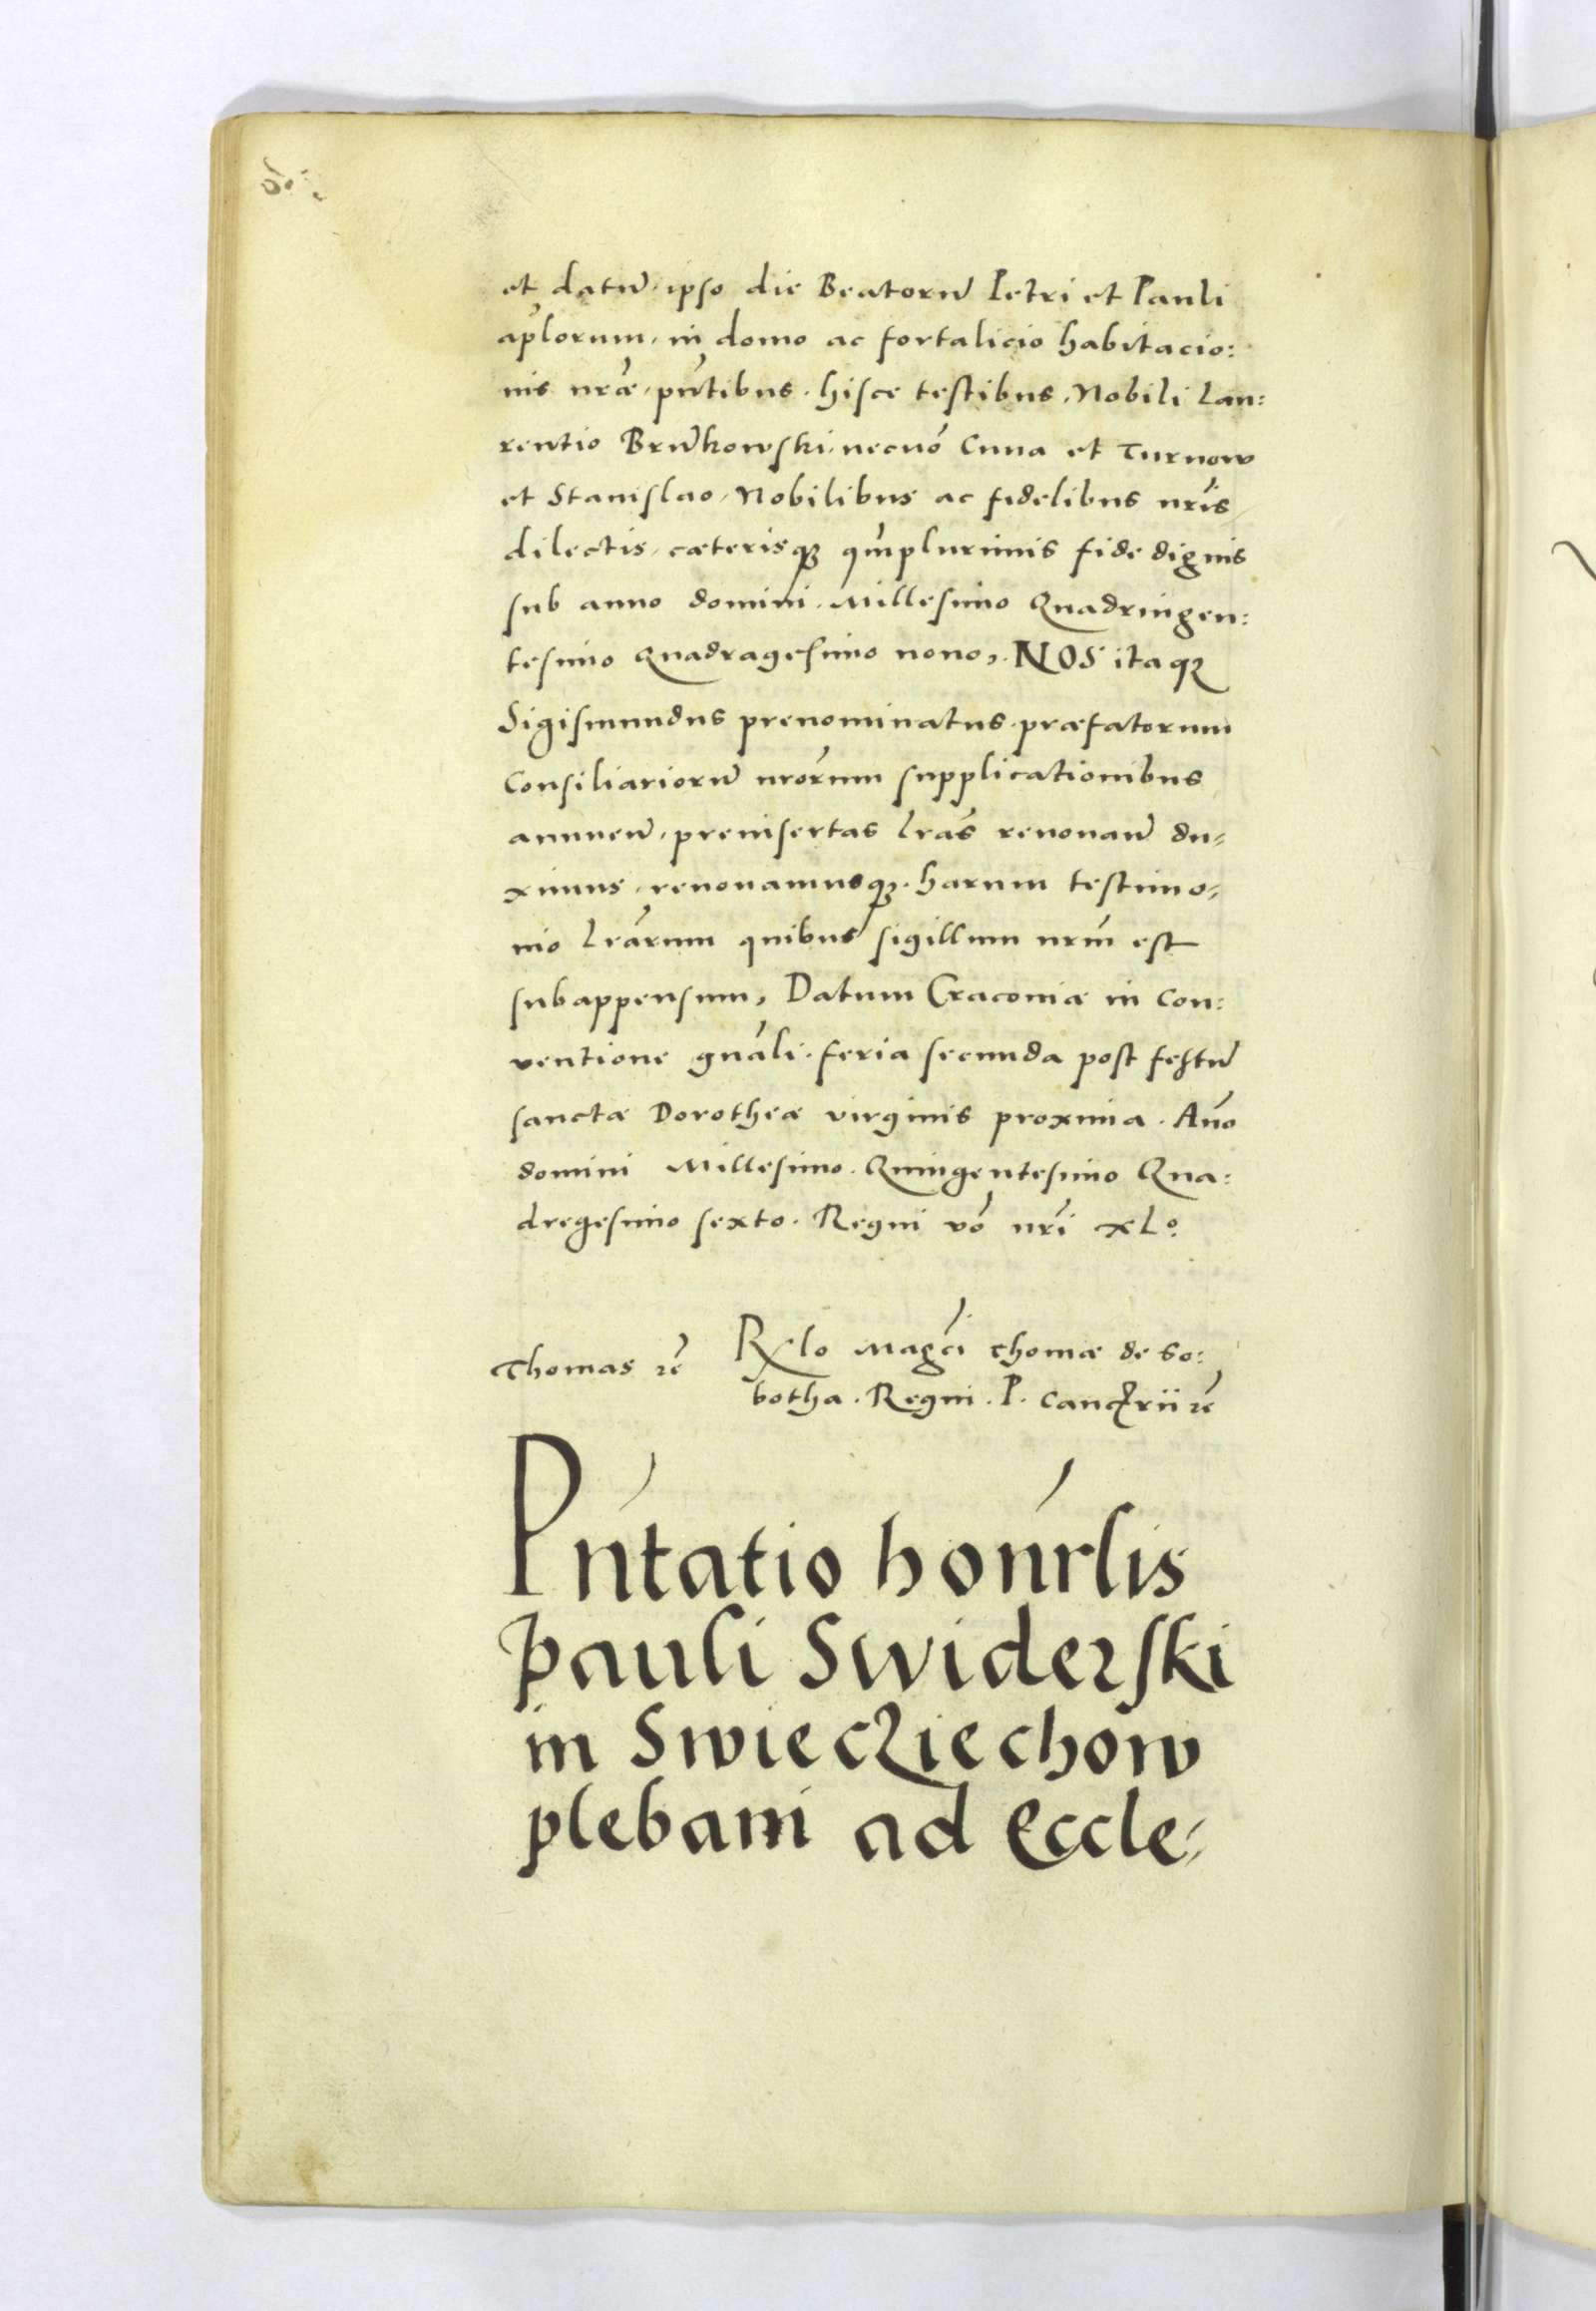 et datū, ipso die Beatorū Petri et Pauli
aplorum, in domo ac fortalicio habitacio:
nis nr̄æ, pn̄tibus. hisce testibus, Nobili Lau:
rentio Brūkowski, necnō Cuna et Turnow
et Stanislao, Nobilibus ac fidelibus nr̄is,
dilectis, cæterisqꝫ qm̄plurimis fide dignis
sub anno domini. Millesimo Quadringen:
tesimo Quadragesimo nono,. NOS itaqꝫ
Sigismundus prenominatus. præfatorum
Consiliariorū nr̄orum supplicationibus
annuen̄, preinsertas lr̄as renouan̄ du⸗
ximus, renouamusqꝫ. harum testimo⸗
nio lr̄arum quibus sigillum nr̄m est
subappensum, Datum Cracoviæ in Con:
ventione gn̄ali. feria secunda post festū
sanctæ Dorotheæ virginis proxima. An̄o
domini Millesimo. Quingentesimo Qua:
dregesimo sexto. Regni vō nr̄i xLo.
Thomas ꝛc̄ Rx̄lo Magc̄i Thomæ de So:
botha. Regni. P. Canc̄rii ꝛc̄
Pn̄tatio hon̄rlis
Pauli Swiderski
in Swiecziechow
plebani ad Eccle⸗